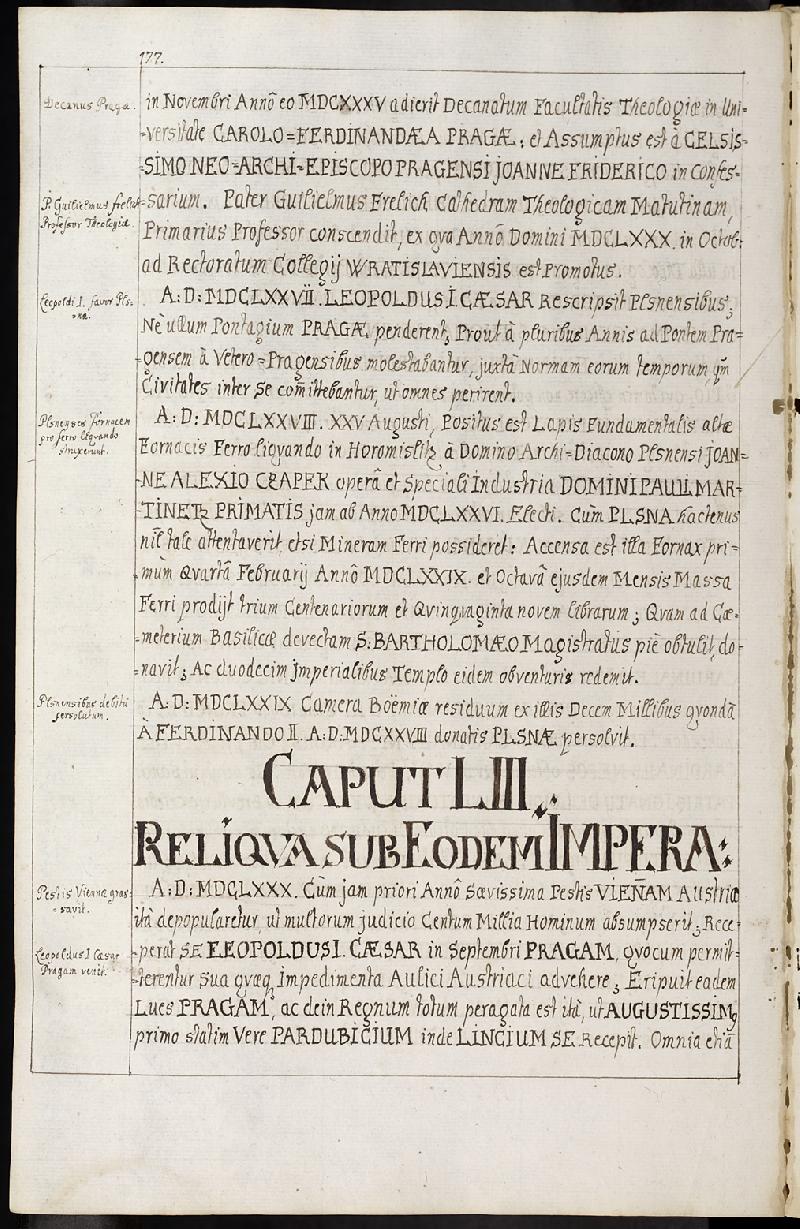 177.
Decanus Pragæ.
in Novembri Annô eo MDCXXXV adierit Decanatum Facultatis Theologiæ in Uni=
=versitate CAROLO=FERDINANDÆA PRAGÆ; et Assumptus est à CELSIS=
=SIMO NEO=ARCHI=EPISCOPO PRAGENSI JOANNE FRIDERICO in Confes=
P. Guilielmus Frelich
Professor Theologiæ.
=sarium. Pater Guilielmus Frelich Cathedram Theologicam Matutinam,
Primarius Professor conscendit, ex qva Annô Domini MDCLXXX. in Octob:
ad Rectoratum Collegij WRATISLAVIENSIS est Promotus.
Leopoldi I. favor Pls=
=næ.
A: D: MDCLXXVII. LEOPOLDUS I. CÆSAR Rescripsit Plsnensibus;
Nè ullum Pontagium PRAGÆ penderent; Prout à pluribus Annis ad Pontem Pra=
=gensem à Vetero=Pragensibus molestabantur, juxtà Normam eorum temporum, qm̄
Civitates inter se com̄ittebantur, ut omnes perirent.
Plsnenses fornacem
pro ferro liqvando
struxerunt.
A: D: MDCLXXVIII. XXV Augusti, Positus est Lapis Fundamentalis altæ
Fornacis Ferro liqvando in Horomislitz à Domino Archi=Diacono Plsnensi JOAN=
=NE ALEXIO CZAPEK operâ et Speciali Industria DOMINI PAULI MAR=
=TINETZ PRIMATIS jam ab Anno MDCLXXVI. Electi. Cum PLSNA hactenus
nil tale attentaverit etsi Mineram Ferri possideret: Accensa est illa Fornax pri=
=mùm Qvartâ Februarij Annô MDCLXXIX. et Octavâ ejusdem Mensis Massa
Ferri prodijt trium Centenariorum et Qvinqvaginta novem librarum; Qvam ad Cæ=
=meterium Basilicæ devectam S: BARTHOLOMÆO Magistratus piè obtulit, do=
=navit; Ac duodecim Imperialibus Templo eidem obventuris redemit.
Plsnensibus debiti
persolutum.
A: D: MDCLXXIX Camera Böemiæ residuum ex illis Decem Millibus qvondà
À FERDINANDO II. A: D: MDCXXVIII donatis PLSNÆ persolvit.
CAPUT LIII.
RELIQVA SUB EODEM IMPERA:
Pestis Viennæ gras=
=savit.
A: D: MDCLXXX. Cùm jam priori Annô sævissima Pestis VIEÑAM Austriæ
ità depopularetur, ut multorum judicio Centum Millia Hominum absumpserit; Rece=
Leopoldus I Cæsar
Pragam venit.
=perat SE LEOPOLDUS I. CÆSAR in Septembri PRAGAM, qvocum permit=
=terentur sua qvæq; Impedimenta Aulici Austriaci advehere; Eripuit eadem
Lues PRAGAM, ac dein Regnum totum peragata est ità, ut AUGUSTISSIM9
primo statim Vere PARDUBICIUM inde LINCIUM SE Recepit. Omnia etiã